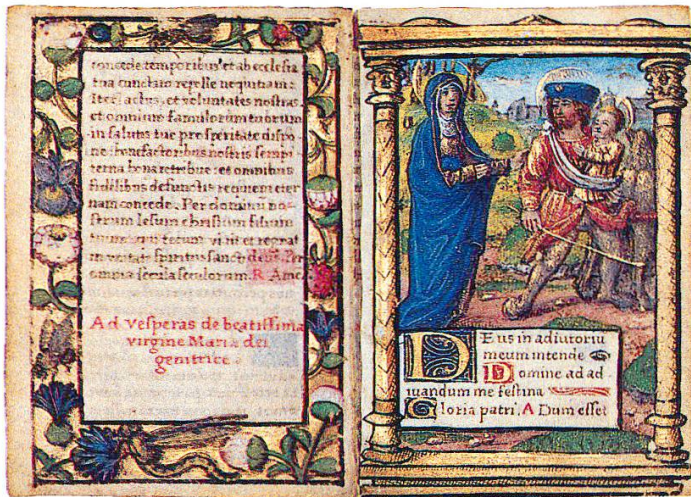 concede temporibus et ab ecclesia
tua cunctam repelle nequitiam:
Iter actus, et voluntates nostras,
et omnium famulorum tuorum
in salutis tue prosperitate dispo
ne: benefactoribus nostris sempi
terna bona retribue: et omnibus
fidelibus defunctis requiem eter
nam concede. Per dominum no=
strum Iesum christum filium
tuum: qui tecum vivit et regnat
in unitate spiritus sancti deus. Per
omnia secula seculorum. R. Ame
Ad vesperas de beatissima
virgine Maria dei
genitrice.
DEus in adiutoriu
meum intende
Domine ad ad
iuvandum me festina
Gloria patri. A Dum esset